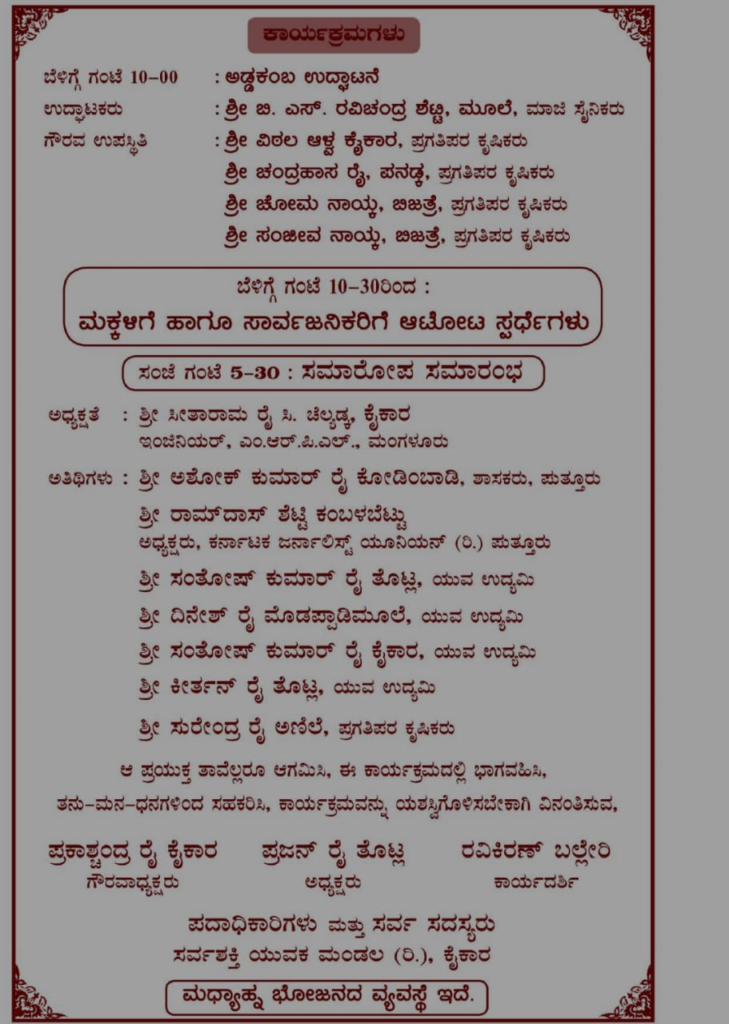 ಕಾರ್ಯಕ್ರಮಗಳು
ಬೆಳಿಗ್ಗೆ ಗಂಟೆ 10-00 : ಅಡ್ಡಕಂಬ ಉದ್ಘಾಟನೆ
ಉದ್ಘಾಟಕರು : ಶ್ರೀ ಬಿ. ಎಸ್. ರವಿಚಂದ್ರ ಶೆಟ್ಟಿ, ಮೂಲೆ, ಮಾಜಿ ಸೈನಿಕರು
ಗೌರವ ಉಪಸ್ಥಿತಿ : ಶ್ರೀ ವಿಠಲ ಆಳ್ವ ಕೈಕಾರ, ಪ್ರಗತಿಪರ ಕೃಷಿಕರು
ಶ್ರೀ ಚಂದ್ರಹಾಸ ರೈ, ಪನಡ್ಕ, ಪ್ರಗತಿಪರ ಕೃಷಿಕರು
ಶ್ರೀ ಚೋಮ ನಾಯ್ಕ, ಬಿಜತ್ರೆ, ಪ್ರಗತಿಪರ ಕೃಷಿಕರು
ಶ್ರೀ ಸಂಜೀವ ನಾಯ್ಕ, ಬಿಜತ್ರೆ, ಪ್ರಗತಿಪರ ಕೃಷಿಕರು
ಬೆಳಿಗ್ಗೆ ಗಂಟೆ 10-30ರಿಂದ :
ಮಕ್ಕಳಿಗೆ ಹಾಗೂ ಸಾರ್ವಜನಿಕರಿಗೆ ಆಟೋಟ ಸ್ಪರ್ಧೆಗಳು
ಸಂಜೆ ಗಂಟೆ 5-30 : ಸಮಾರೋಪ ಸಮಾರಂಭ
ಅಧ್ಯಕ್ಷತೆ : ಶ್ರೀ ಸೀತಾರಾಮ ರೈ ಸಿ. ಚೆಲ್ಯಡ್ಕ, ಕೈಕಾರ
ಇಂಜಿನಿಯರ್, ಎಂ.ಆರ್.ಪಿ.ಎಲ್., ಮಂಗಳೂರು
ಅತಿಥಿಗಳು : ಶ್ರೀ ಅಶೋಕ್ ಕುಮಾರ್ ರೈ ಕೋಡಿಂಬಾಡಿ, ಶಾಸಕರು, ಪುತ್ತೂರು
ಶ್ರೀ ರಾಮ್‌ದಾಸ್ ಶೆಟ್ಟಿ ಕಂಬಳಬೆಟ್ಟು
ಅಧ್ಯಕ್ಷರು, ಕರ್ನಾಟಕ ಜರ್ನಾಲಿಸ್ಟ್ ಯೂನಿಯನ್ (ರಿ.) ಪುತ್ತೂರು
ಶ್ರೀ ಸಂತೋಷ್ ಕುಮಾರ್ ರೈ ತೊಟ್ಲ, ಯುವ ಉದ್ಯಮಿ
ಶ್ರೀ ದಿನೇಶ್ ರೈ ಮೊಡಪ್ಪಾಡಿಮೂಲೆ, ಯುವ ಉದ್ಯಮಿ
ಶ್ರೀ ಸಂತೋಷ್ ಕುಮಾರ್ ರೈ ಕೈಕಾರ, ಯುವ ಉದ್ಯಮಿ
ಶ್ರೀ ಕೀರ್ತನ್ ರೈ ತೊಟ್ಲ, ಯುವ ಉದ್ಯಮಿ
ಶ್ರೀ ಸುರೇಂದ್ರ ರೈ ಅಣಿಲೆ, ಪ್ರಗತಿಪರ ಕೃಷಿಕರು
ಆ ಪ್ರಯುಕ್ತ ತಾವೆಲ್ಲರೂ ಆಗಮಿಸಿ, ಈ ಕಾರ್ಯಕ್ರಮದಲ್ಲಿ ಭಾಗವಹಿಸಿ,
ತನು-ಮನ-ಧನಗಳಿಂದ ಸಹಕರಿಸಿ, ಕಾರ್ಯಕ್ರಮವನ್ನು ಯಶಸ್ವಿಗೊಳಿಸಬೇಕಾಗಿ ವಿನಂತಿಸುವ,
ಪ್ರಕಾಶ್ಚಂದ್ರ ರೈ ಕೈಕಾರ ಪ್ರಜನ್ ರೈ ತೊಟ್ಲ ರವಿಕಿರಣ್ ಬಲ್ಲೇರಿ
ಗೌರವಾಧ್ಯಕ್ಷರು ಅಧ್ಯಕ್ಷರು ಕಾರ್ಯದರ್ಶಿ
ಪದಾಧಿಕಾರಿಗಳು ಮತ್ತು ಸರ್ವ ಸದಸ್ಯರು
ಸರ್ವಶಕ್ತಿ ಯುವಕ ಮಂಡಲ (ರಿ.), ಕೈಕಾರ
ಮಧ್ಯಾಹ್ನ ಭೋಜನದ ವ್ಯವಸ್ಥೆ ಇದೆ.